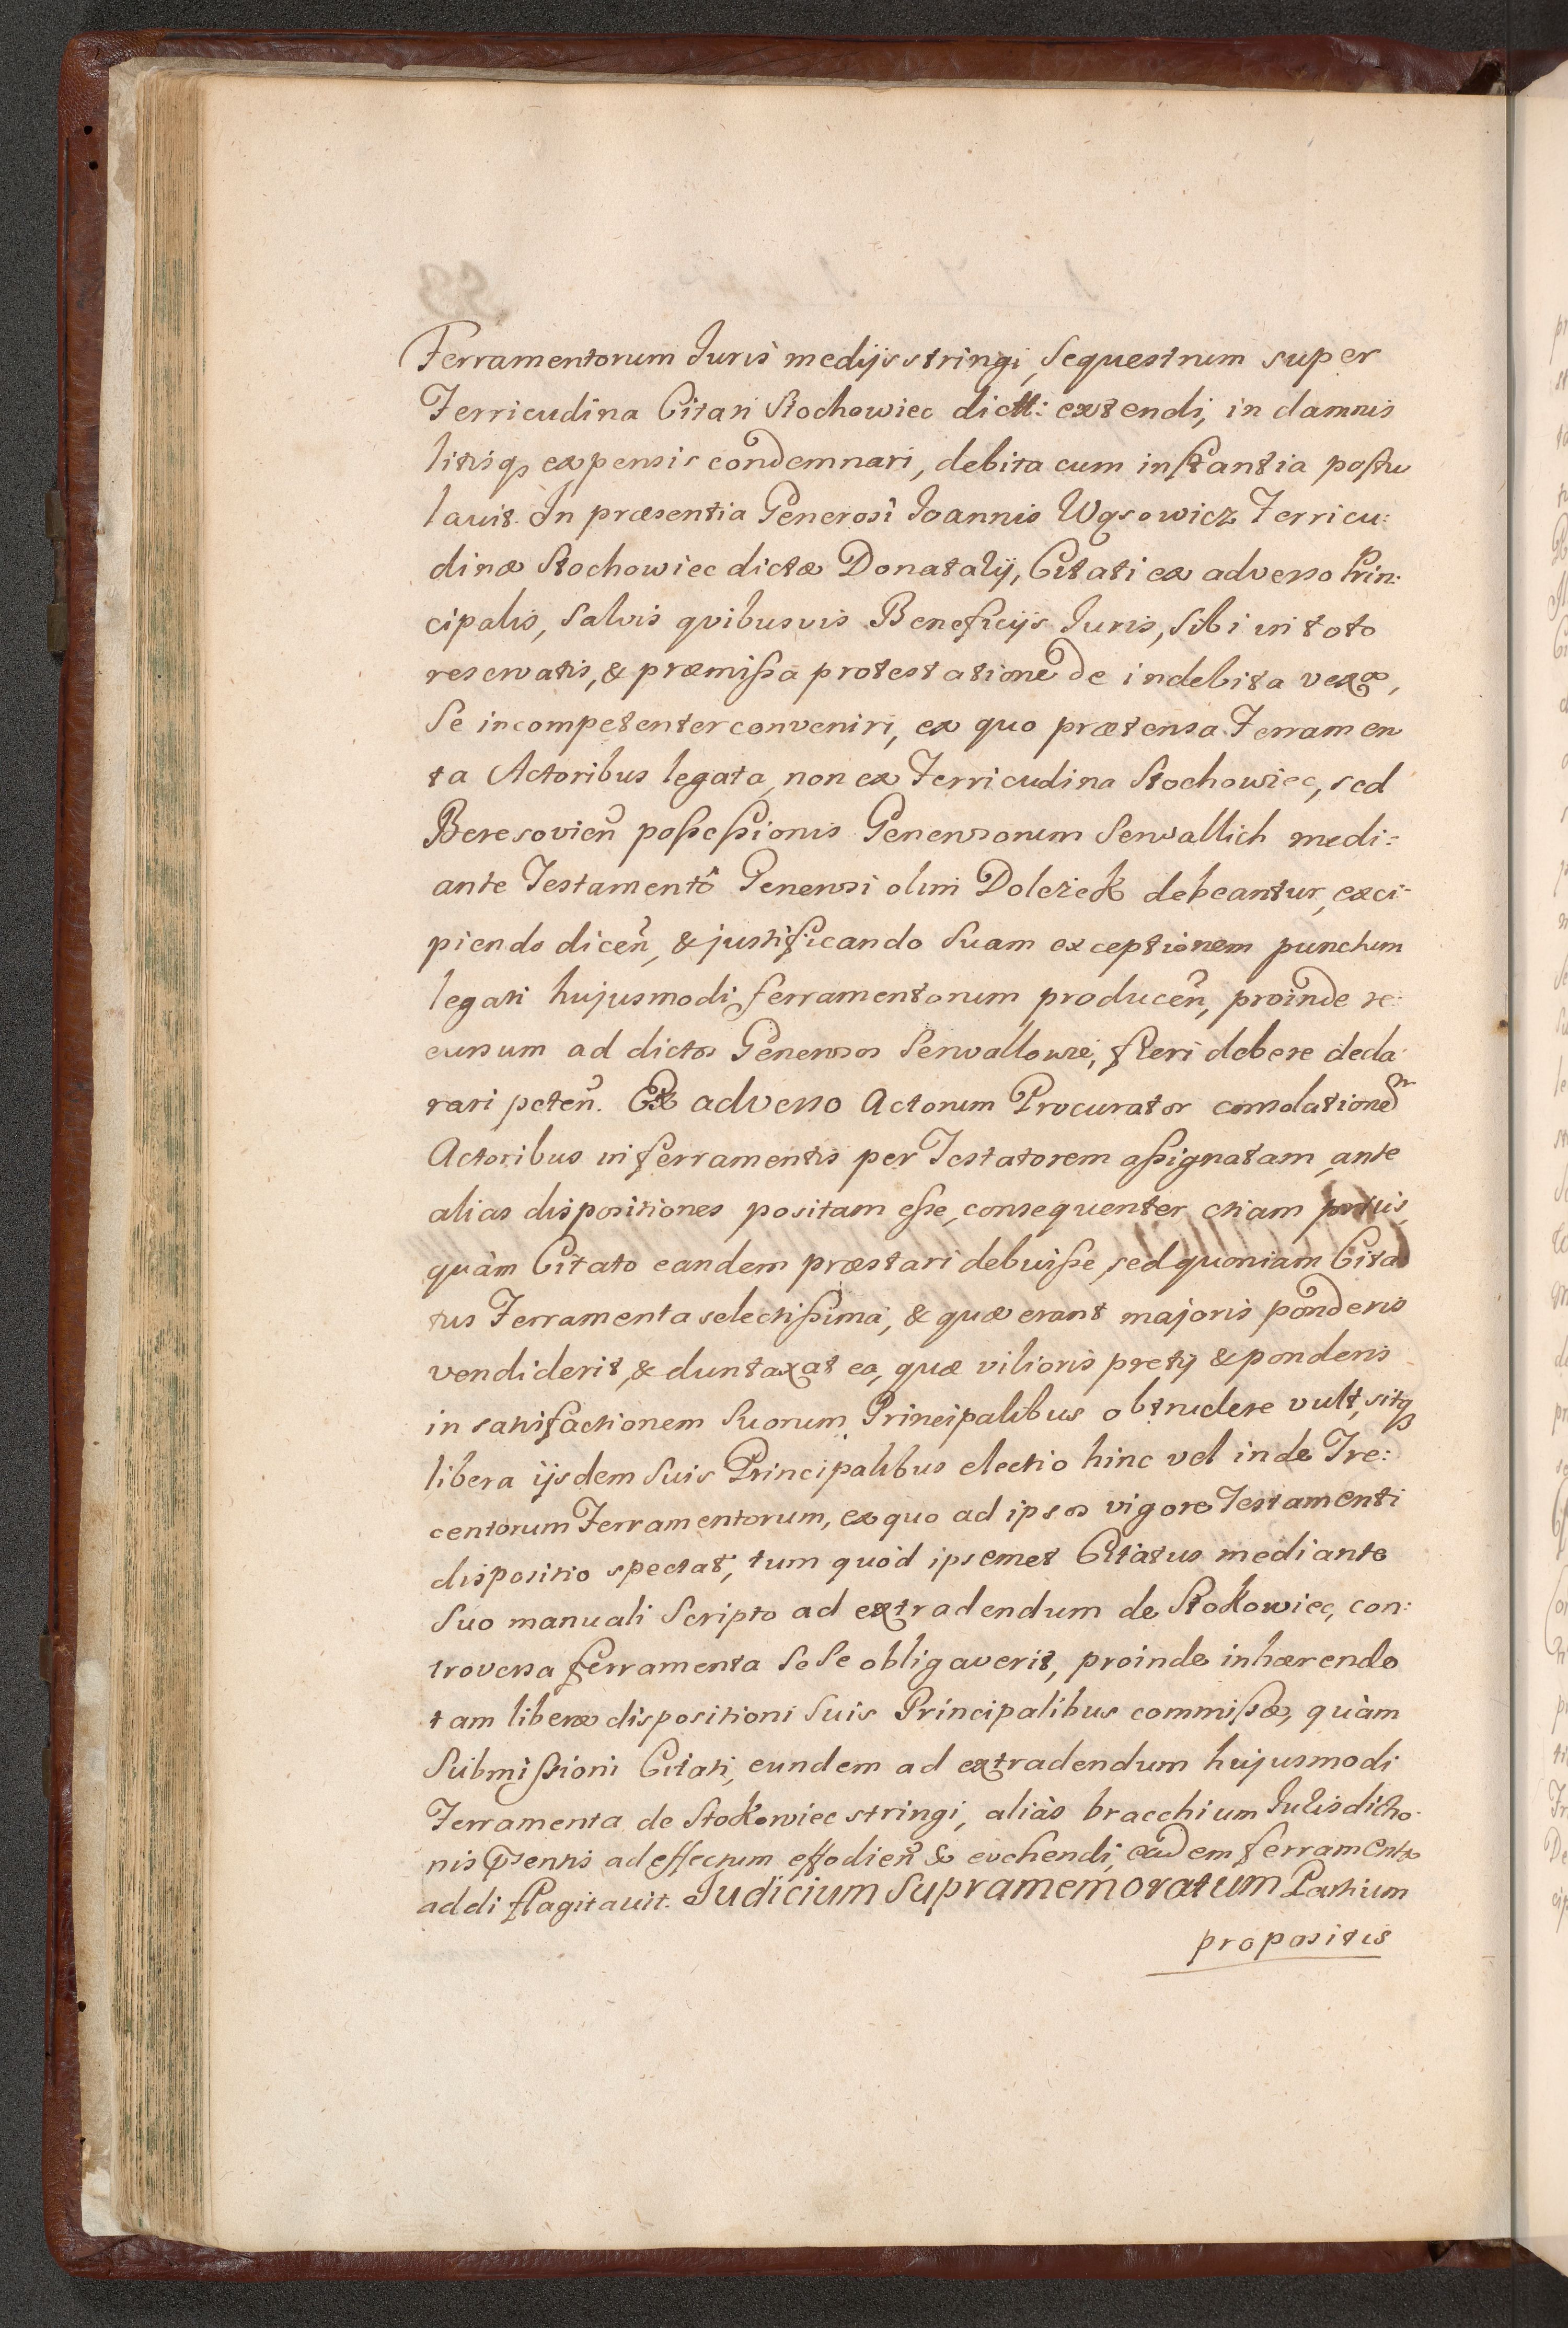 Ferramentorum Juris medijs stringi, Sequestrum super
Ferricudina Citati Stochowiec dictt: extendi, in damnis
litisq; expensis condemnari, debita cum instantia postu
lavit. In præsentia Generosi Joannis Wąsowicz Ferricu:
dinæ Stochowiec dictæ Donatarij, Citati ex adverso Prin:
cipalis, Salvis quibusvis Beneficijs Juris, Sibi in toto
reservatis, & præmissa protestatione de indebita vexæ,
Se incompetenter conveniri, ex quo prætensa Ferramen
ta Actoribus legata, non ex Ferricudina Stochowiec, sed
Beresovien̄ possessionis Generosorum Serwallich medi:
ante Testamento Generosi olim Dolezek debeantur, exci:
piendo dicen̄, & justificando Suam exceptionem punctum
legati hujusmodi ferramentorum producen̄, proinde re:
cursum ad dictos Generosos Serwallowie, fieri debere decla:
rari peten̄. Ex adverso Actorum Procurator consolationem
Actoribus in ferramentis per Testatorem assignatam, ante
alias dispositiones positam esse, consequenter etiam priùs,
quàm Citato eandem præstari debuisse, sed quoniam Cita
tus Ferramenta selectissima, & quæ erant majoris ponderis
vendiderit, & duntaxat ea, quæ vilioris pretij & ponderis
in satisfactionem Suorum Principalibus obtrudere vult, sitq;
libera ijsdem Suis Principalibus electio hinc vel inde Tre:
centorum Ferramentorum, ex quo ad ipsos vigore Testamenti
dispositio spectat, tum quòd ipsemet Citatus mediante
Suo manuali Scripto ad extradendum de Stokowiec, con:
troversa ferramenta Se Se obligaverit, proinde inhærendo
tam liberæ dispositioni Suis Principalibus commissæ, quàm
Submissioni Citati, eundem ad extradendum hujusmodi
Ferramenta de Stokowiec stringi, aliàs bracchium Jurisdictio:
nis p̄sentis ad effectum effodien̄ & evehendi, eadem ferramenta
addi flagitavit. Judicium Supramemoratum Partium
propositis